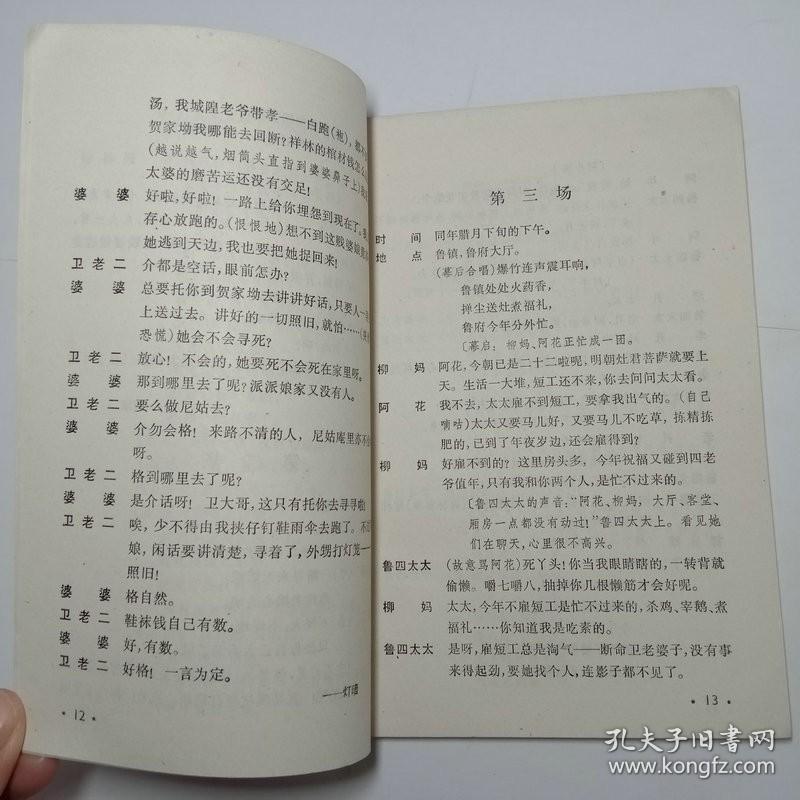 汤，我城隍老爷带孝——白跑(袍)，
贺家坳我哪能去回断？祥林的棺材钱怎么
(越说越气，烟筒头直指到婆婆鼻子上)
太婆的磨苦运还没有交足！
婆　婆　好啦，好啦！一路上给你埋怨到现在了。
存心放跑的。(恨恨地)想不到这贱婆娘
她逃到天边，我也要把她捉回来！
卫老二　介都是空话，眼前怎办？
婆　婆　总要托你到贺家坳去讲讲好话，只要人一
上送过去。讲好的一切照旧，就怕……
恐慌)她会不会寻死？
卫老二　放心！不会的，她要死不会死在家里呀。
婆　婆　那到哪里去了呢？派派娘家又没有人。
卫老二　要么做尼姑去？
婆　婆　介勿会格！来路不清的人，尼姑庵里亦不
呀。
卫老二　格到哪里去了呢？
婆　婆　是介话呀！卫大哥，这只有托你去寻寻啦！
卫老二　唉，少不得由我挟仔钉鞋雨伞去跑了。不过
娘，闲话要讲清楚，寻着了，外甥打灯笼——
照旧！
婆　婆　格自然。
卫老二　鞋袜钱自己有数。
婆　婆　好，有数。
卫老二　好格！一言为定。
——灯暗
·12·
第三场
时　间　同年腊月下旬的下午。
地　点　鲁镇，鲁府大厅。
(幕后合唱)爆竹连声震耳响，
鲁镇处处火药香，
掸尘送灶煮福礼，
鲁府今年分外忙。
〔幕启：柳妈、阿花正忙成一团。
柳　妈　阿花，今朝已是二十二啦呢，明朝灶君菩萨就要上
天。生活一大堆，短工还不来，你去问问太太看。
阿　花　我不去，太太雇不到短工，要拿我出气的。(自己
嘀咕)太太又要马儿好，又要马儿不吃草，拣精拣
肥的，已到了年夜岁边，还会雇得到？
柳　妈　好雇不到的？这里房头多，今年祝福又碰到四老
爷值年，只有我和你两个人，是忙不过来的。
〔鲁四太太的声音：“阿花、柳妈，大厅、客堂、
厢房一点都没有动过！”鲁四太太上。看见她
们在聊天，心里很不高兴。
鲁四太太　(故意骂阿花)死丫头！你当我眼睛瞎的，一转背就
偷懒。嚼七嚼八，抽掉你几根懒筋才会好呢。
柳　妈　太太，今年不雇短工是忙不过来的，杀鸡、宰鹅、煮
福礼……你知道我是吃素的。
鲁四太太　是呀，雇短工总是淘气——断命卫老婆子，没有事
来得起劲，要她找个人，连影子都不见了。
·13·
孔夫子旧书网
www.kongfz.com